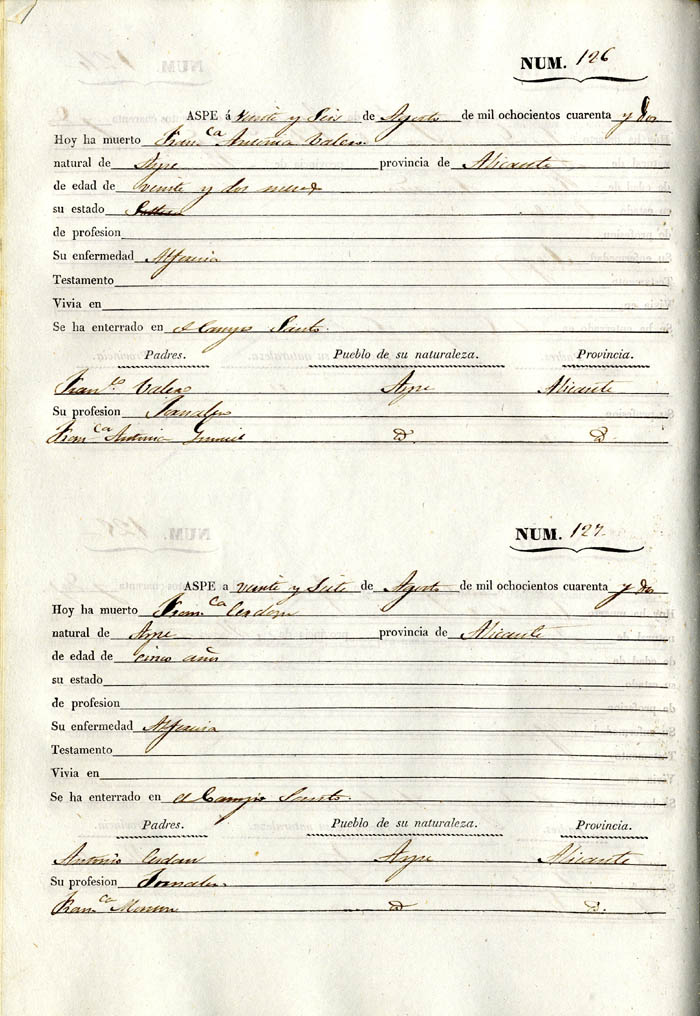 NUM. 126
ASPE á veinte y Seis de Agosto de mil ochocientos cuarenta y dos
Hoy ha muerto Fran.ca Antonia Valero
natural de Aspe provincia de Alicante
de edad de veinte y dos meses
su estado
de profesion
Su enfermedad Alferecia
Testamento
Vivia en
Se ha enterrado en el Campo Santo.
Padres. Pueblo de su naturaleza. Provincia.
Fran.co Valero Aspe Alicante
Su profesion Jornalero
Fran.ca Antonia D. D.
NUM. 127.
ASPE a veinte y Siete de Agosto de mil ochocientos cuarenta y dos
Hoy ha muerto Fran.ca Cerdan
natural de Aspe provincia de Alicante
de edad de cinco años
su estado
de profesion
Su enfermedad Alferecia
Testamento
Vivia en
Se ha enterrado en el Campo Santo.
Padres. Pueblo de su naturaleza. Provincia.
Antonio Cerdan Aspe Alicante
Su profesion Jornalero
Fran.ca D. D.